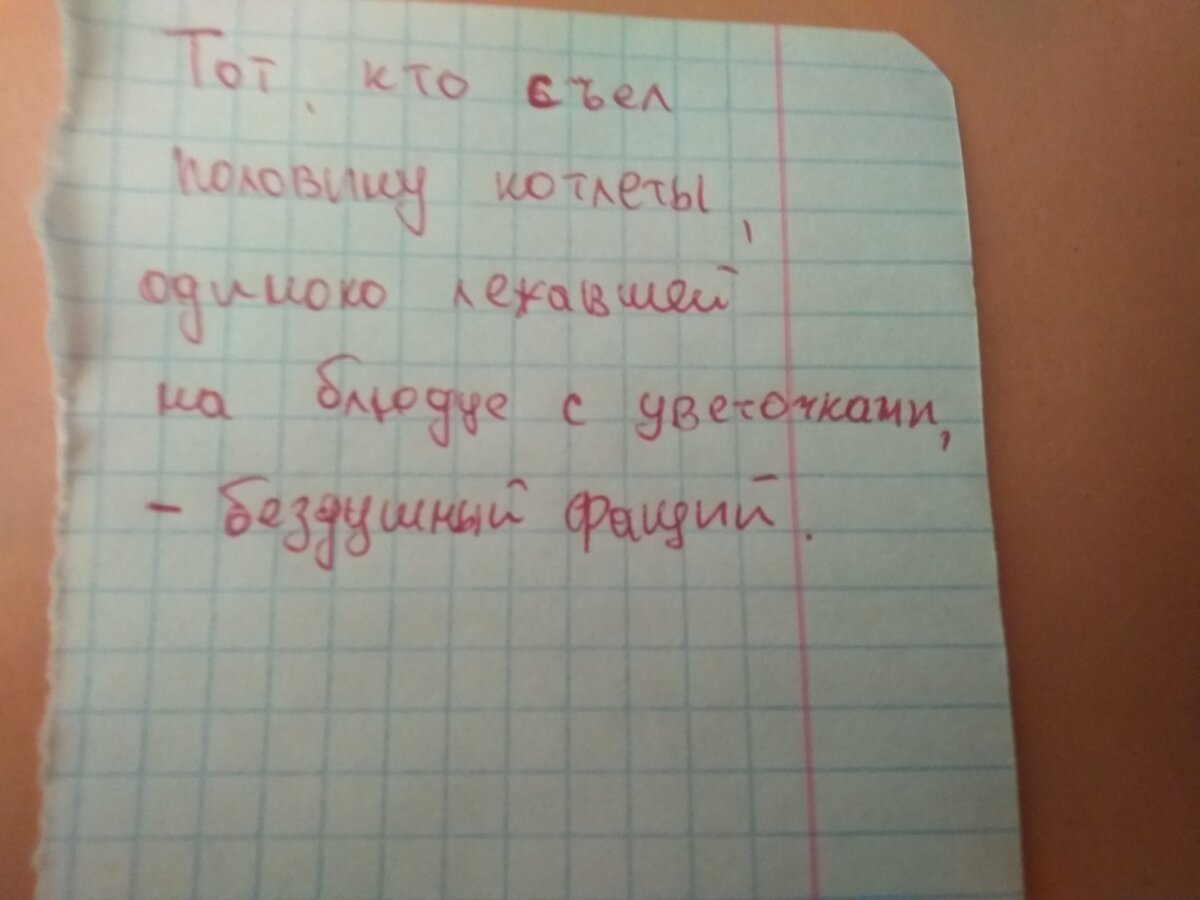 Тот, кто съел
половину котлеты,
одиноко лежавшей
на блюдце с цветочками,
- бездушный фащий.